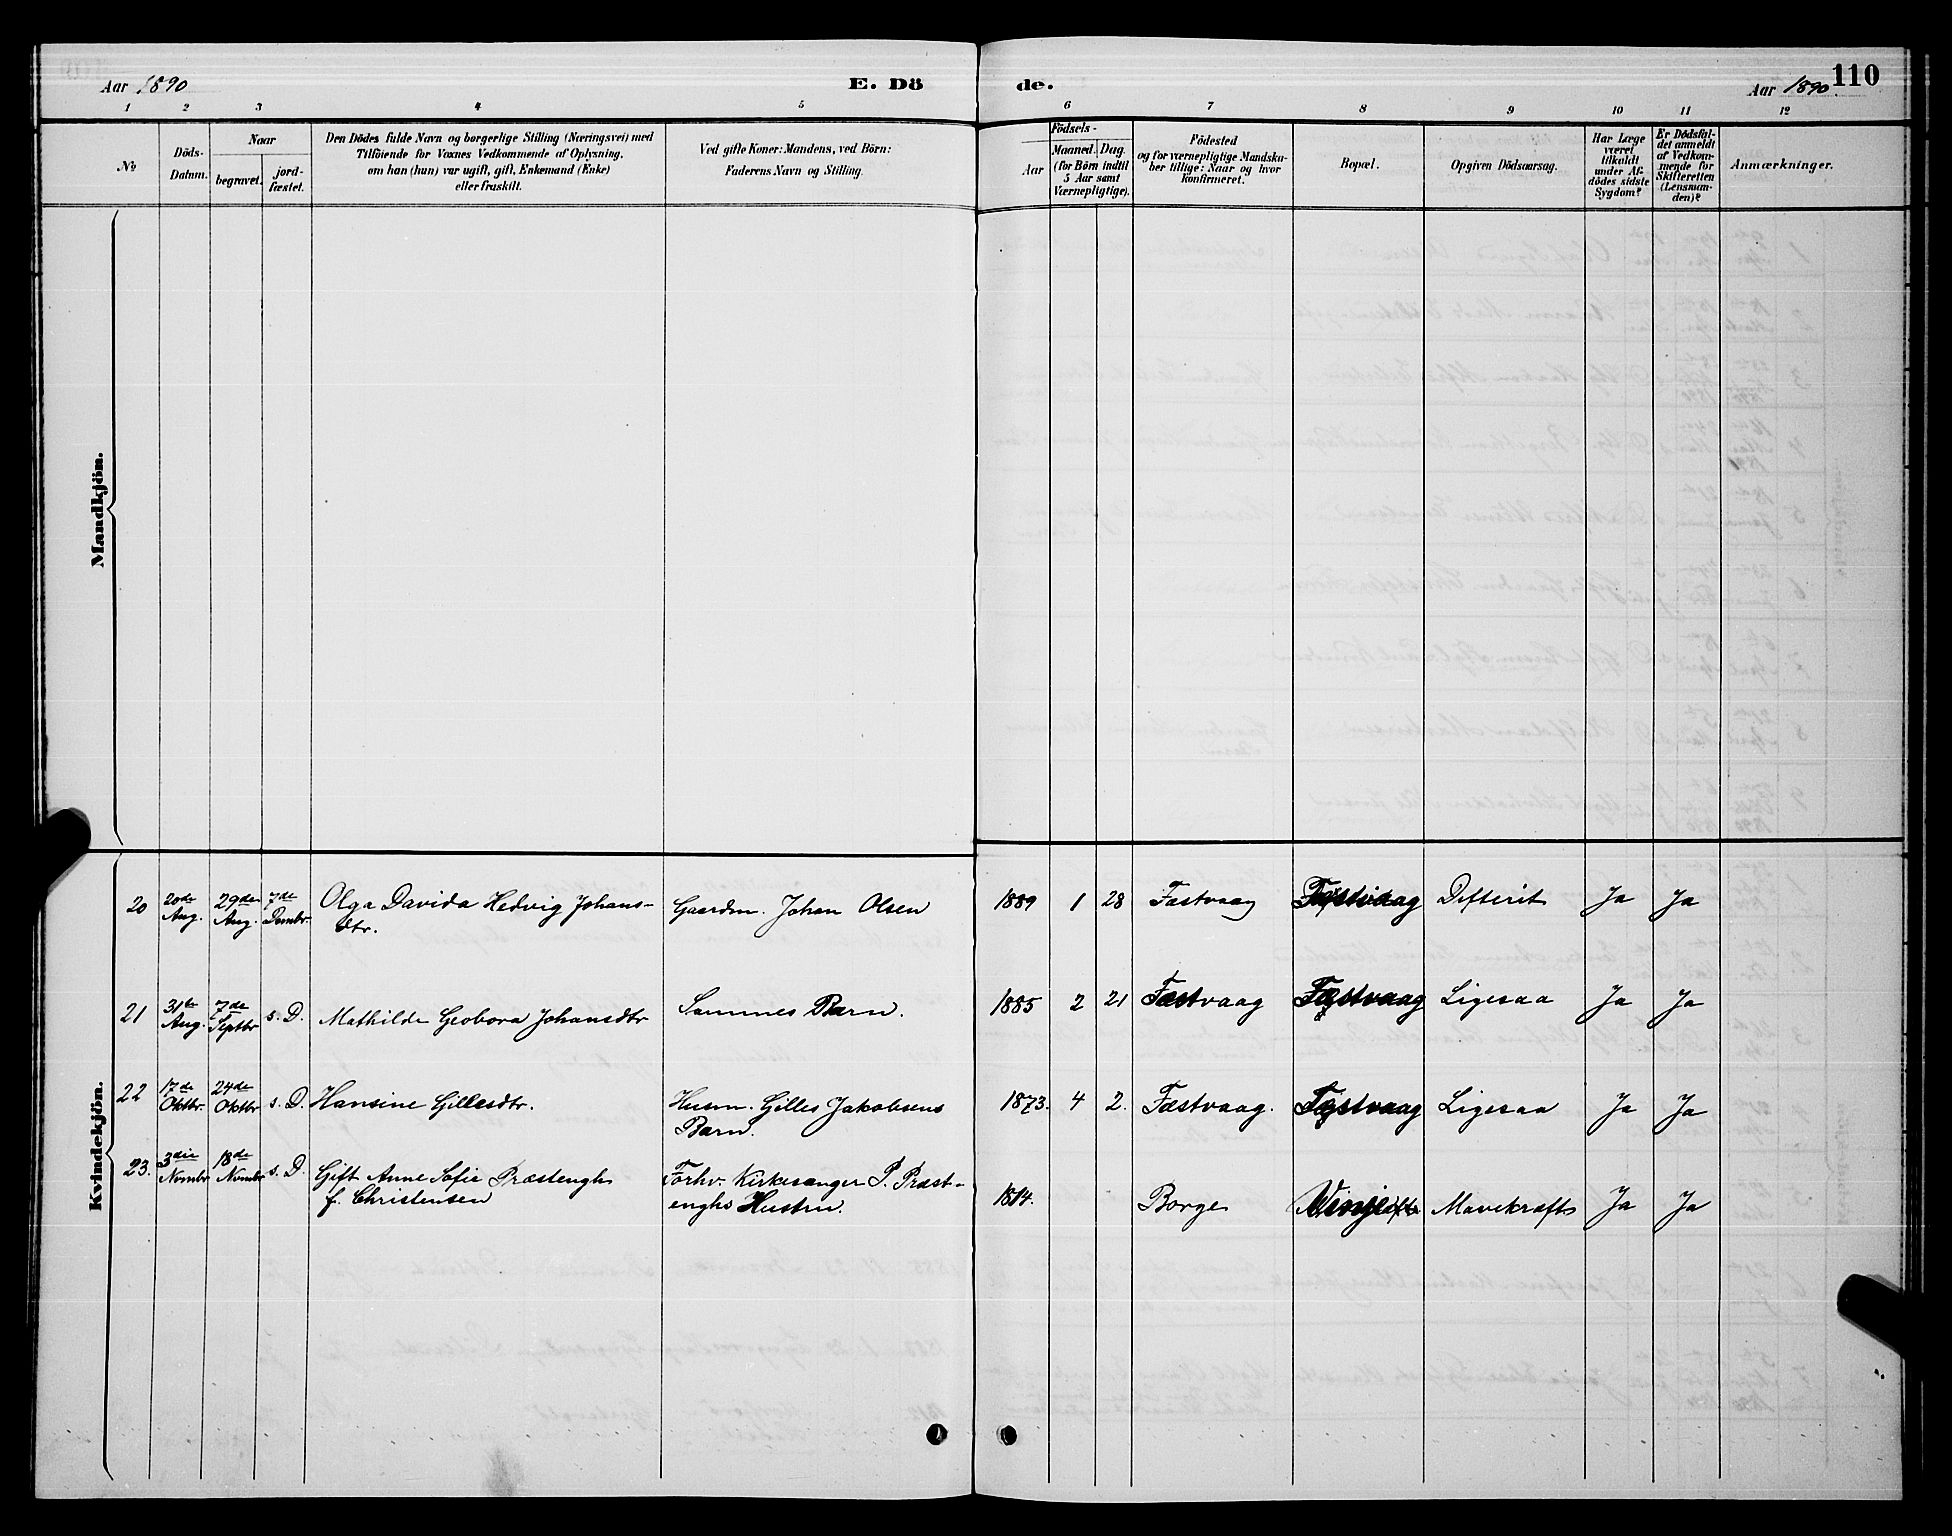 Aar 1890
E. Dö
de.
Aar 1890.
110
1 2 3 4 5 6 7 8 9 10 11 12
No
Döds-
Datum.
Naar
begravet.
jord-
fæstet.
Den Dödes fulde Navn og borgerlige Stilling (Næringsvei) med
Tilföiende for Voxnes Vedkommende af Oplysning,
om han (hun) var ugift, gift, Enkemand (Enke)
eller fraskilt.
Ved gifte Koner: Mandens, ved Börn:
Faderens Navn og Stilling.
Födsels-
Aar
Maaned. Dag.
(for Börn indtil
5 Aar samt
Værnepligtige).
Födested
og for værnepligtige Mandska-
ber tillige: Naar og hvor
konfirmeret.
Bopæl.
Opgiven Dödsaarsag.
Har Læge
været
tilkaldt
under Af-
dödes sidste
Sygdom?
Er Dödsfal-
det anmeldt
af Vedkom-
mende for
Skifteretten
(Lensman-
den)?
Anmærkninger.
Mandkjön.
Kvindekjön.
20 20de Aug. 29de Aug. 7de Olga Davida Hedvig Johans-
dtr. Gaardm. Johan Olsen 1889 1 28 Fastvaag Fastvaag Difterit Ja Ja
21 31te Aug. 7de Septbr s. D. Mathilde Geobora Johansdtr Sammes Barn. 1885 2 21 Fæstvaag Fæstvaag Ligesaa Ja Ja
22 17de Oktbr. 24de Oktbr s. D. Hansine Gillesdtr. Husm. Gilles Jakobsens
Barn. 1873. 4 2. Fæstvaag. Fæstvaag Ligesaa Ja Ja
23. 3die Novmbr 18de Novmbr s. D. Gift Anne Sofie Præstengh
f. Christensen Forhv. Kirkesanger P. Præst-
enghs Hustru. 1814. Borge Vinje Mavekræft Ja Ja